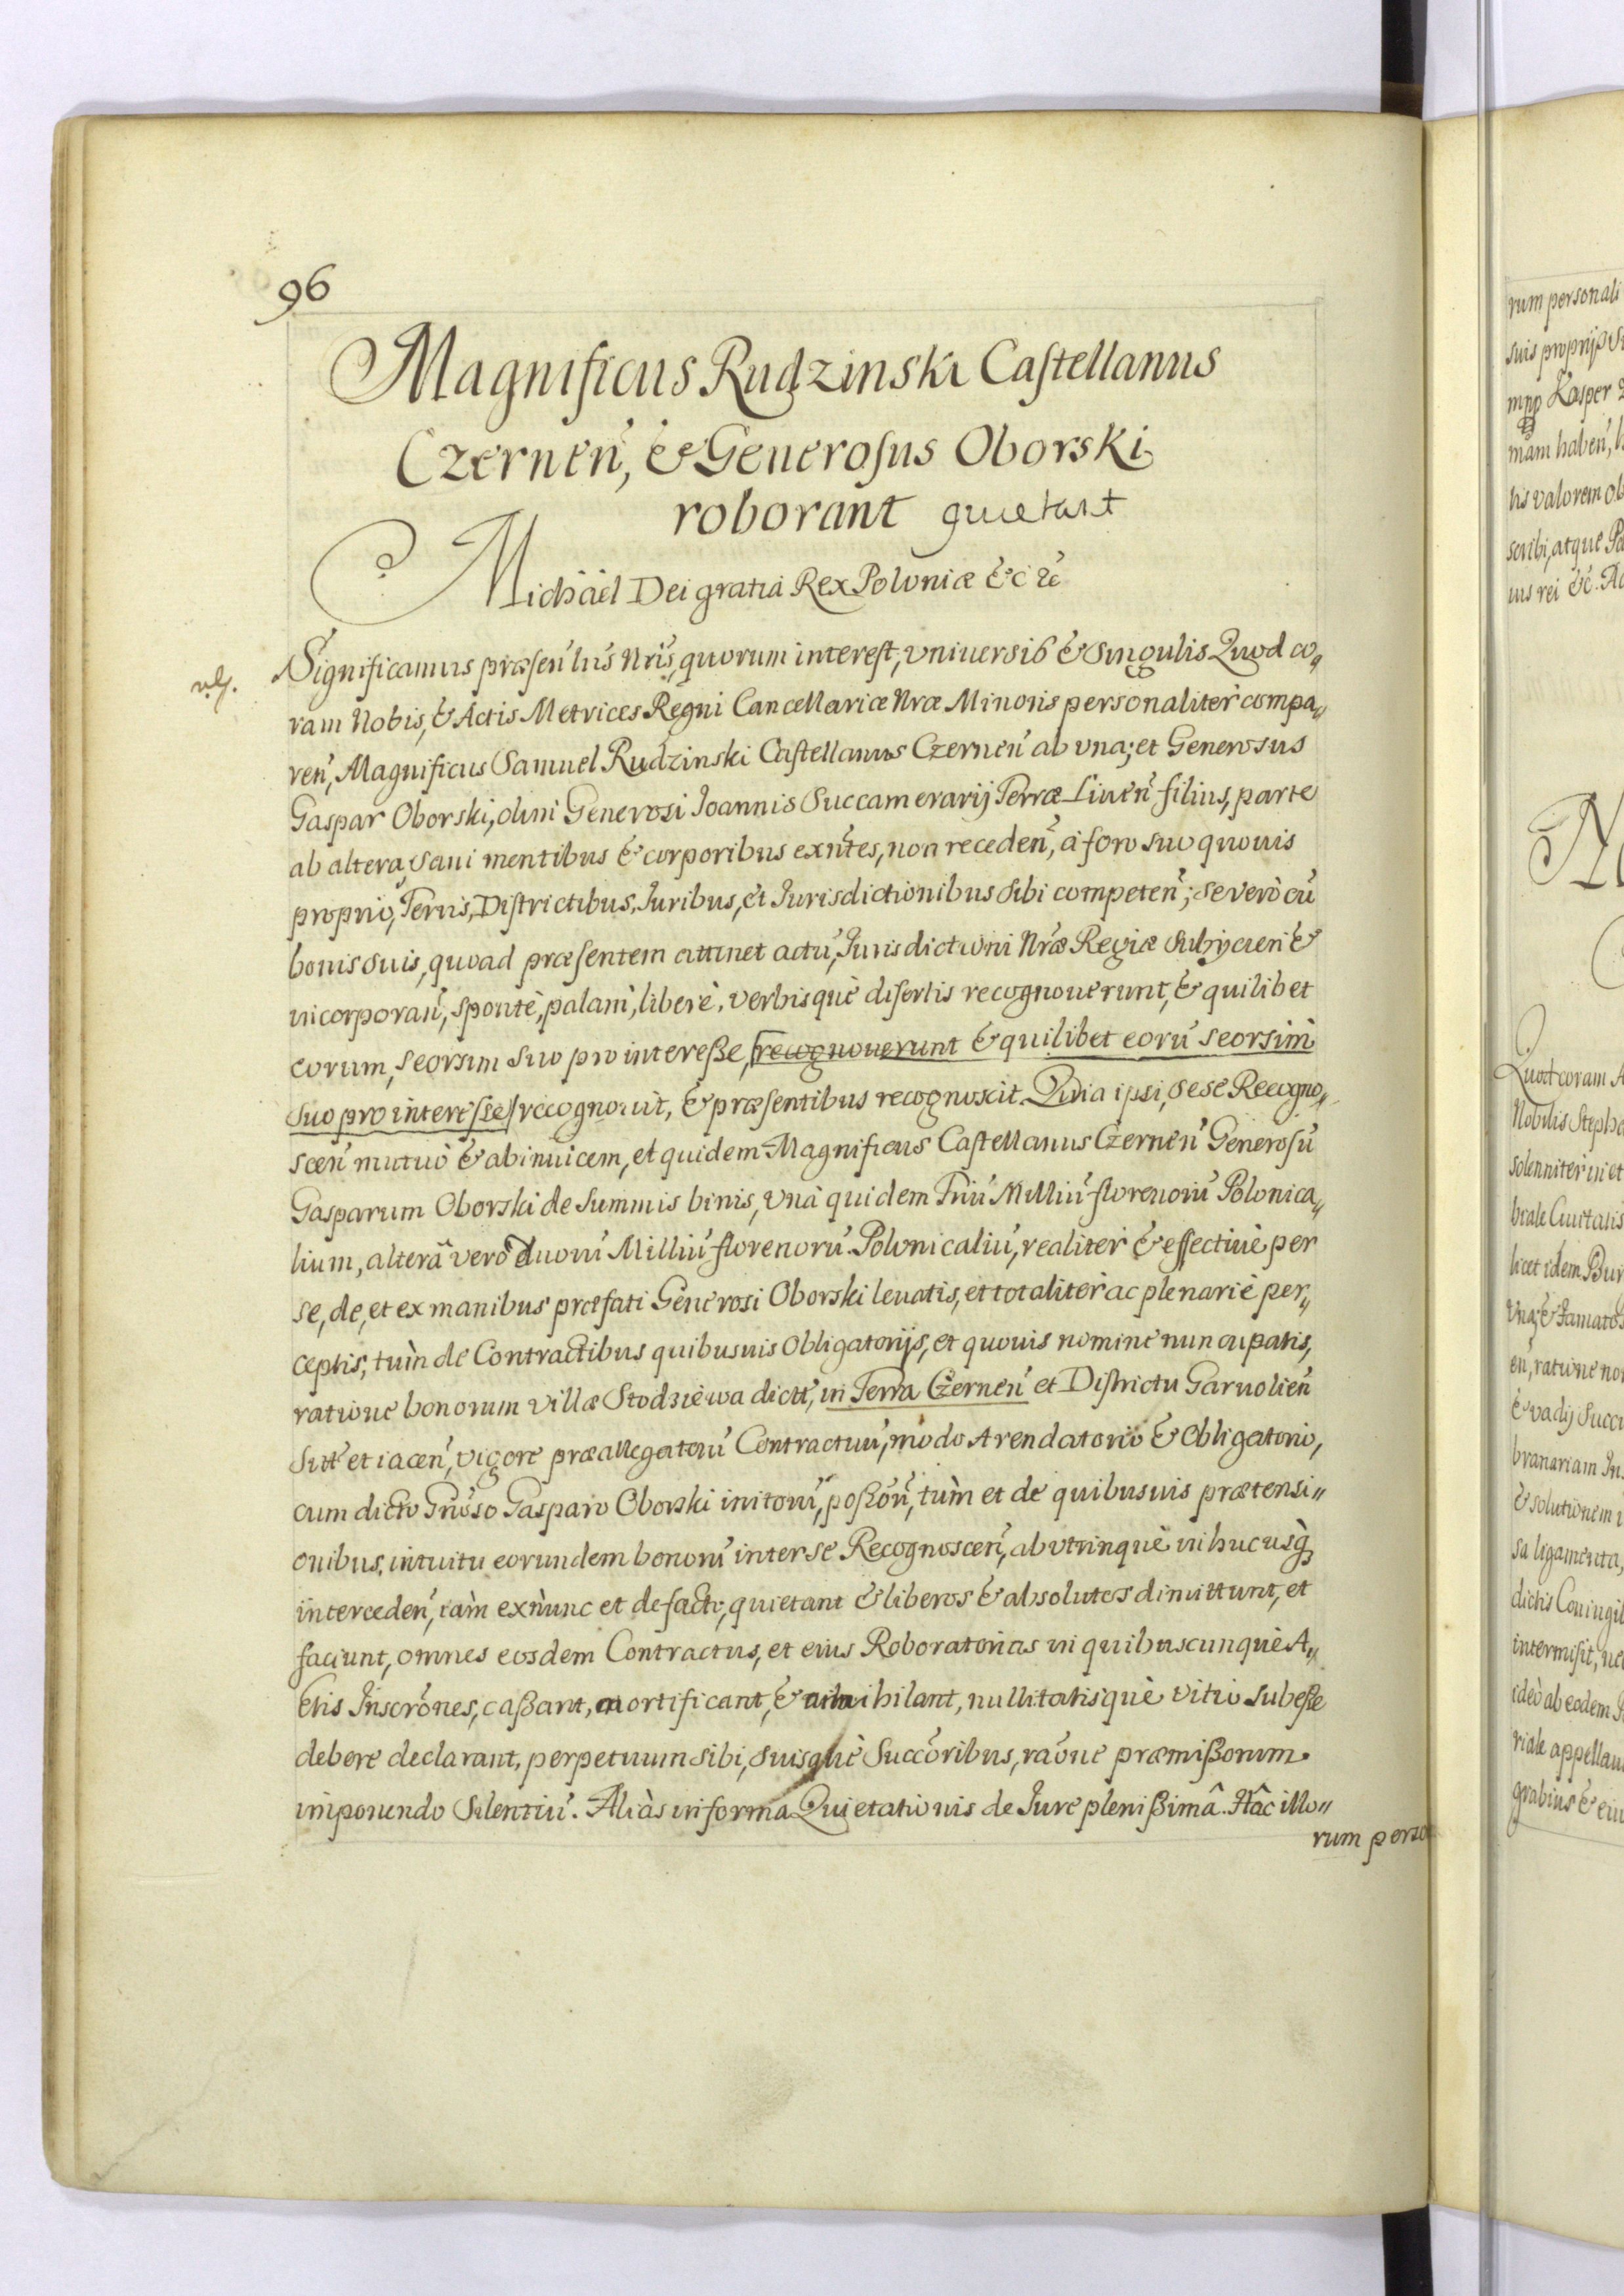 96
Magnificus Rudzinski Castellanus
Czernen̄, & Generosus Oborski
roborant quietant
Michäel Dei gratia Rex Poloniæ &c &c
Significamus præsen̄ lris Nris, quorum interest, vniuersis & Singulis Quod co„
ram Nobis, & Actis Metrices Regni Cancellariæ Nræ Minoris personalitèr compa„
ren̄, Magnificus Samuel Rudzinski Castellanus Czernen̄ ab vna; et Generosus
Gaspar Oborski, olim Generosi Joannis Succamerarij Terræ Liuen̄ filius, parte
ab altera, Sani mentibus & corporibus exn̄tes, non receden̄, à foro suo quouis
proprio, Terris, Districtibus, Juribus, et Jurisdictionibus Sibi competen̄; se verò cū
bonis Suis, quoad præsentem attinet actū, Jurisdictioni Nræ Regiæ Subijcien̄ &
incorporan̄, spontè, palam̀, liberè, verbisquè disertis recognouerunt, & quilibet
eorum, seorsim Suo pro interesse, recognouerunt & quilibet eorū seorsim̀
Suo pro interesse recognouit, & præsentibus recognoscit. Quia ipsi, sese Recogno„
scen̄ mutuò & abinuicem, et quidem Magnificus Castellanus Czernen̄ Generosū
Gasparum Oborski de Summis binis, vnà quidem Triū Milliū florenorū Polonica„
lium, alterâ verò duorū Milliū florenorū Polonicaliū, realitèr & effectiuè per
se, de, et ex manibus præfati Generosi Oborski leuatis, et totalitèr ac plenariè per„
ceptis, tùm de Contractibus quibusuis Obligatorijs, et quouis nomine nuncupatis,
ratione bonorum villæ Stodziewa dictt̄, in Terra Czernen̄ et Districtu Garuolien̄
Sitt̄ et iacen̄, vigore præallegatorū Contractuū, modo Arendatorio & Obligatorio,
cum dicto Grūso Gasparo Oborski initorū, poßōrū, tùm et de quibusuis prætensi„
onibus, intuitu eorundem bonorū inter se Recognoscen̄, abvtrinquè in hucusq̨
interceden̄, tàm exn̄unc et de facto, quietant & liberos & absolutos dimittunt, et
faciunt, omnes eosdem Contractus, et eius Roboratorias in quibuscunquè A„
ctis Inscrōnes, caßant, mortificant, & annihilant, nullitatisquè vitio Subeße
debere declarant, perpetuum sibi, Suisquè Succōribus, raōne præmißorum
imponendo Silentiū. Aliàs in forma Quietationis de Jure plenißimâ. Hâc illo„
rum perso